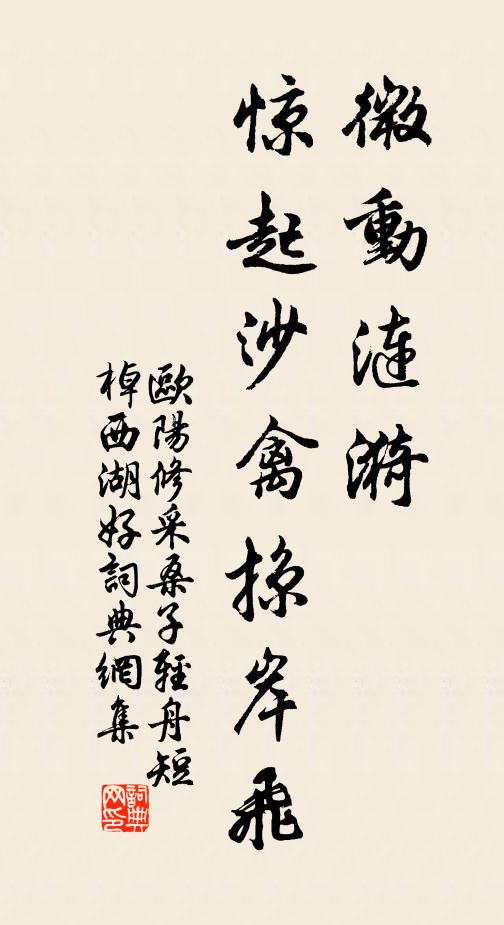 微動漣漪
惊起沙禽掠岸飛
歐陽修采桑子輕舟短
棹西湖好詞典網集
詞典网印